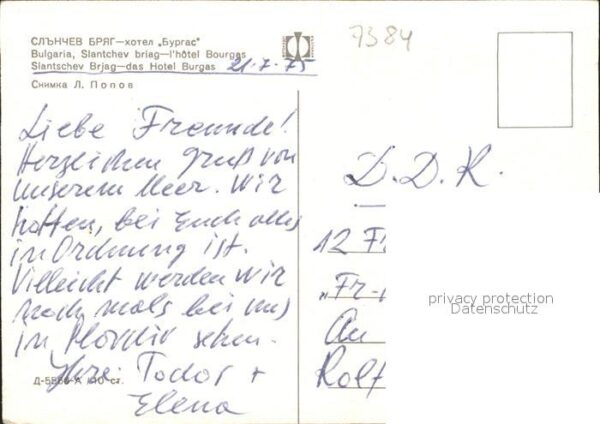 СЛЪНЧЕВ БРЯГ—хотел „Бургас"
Bulgaria, Slantchev briag—l'hôtel Bourgas
Slantschev Brjag—das Hotel Burgas 21.7.75
Снимка Л. Попов
7384
Liebe Freunde!
Herzlichen Gruß von
unserem Meer. Wir
hoffen, bei Euch alles
in Ordnung ist.
Villeicht werden wir
noch mals bei uns
in Plovdiv sehen.
Ihre: Todor +
Elena
D.D.R.
12 Fr
„Fr-
An
Rolf
privacy protection
Datenschutz